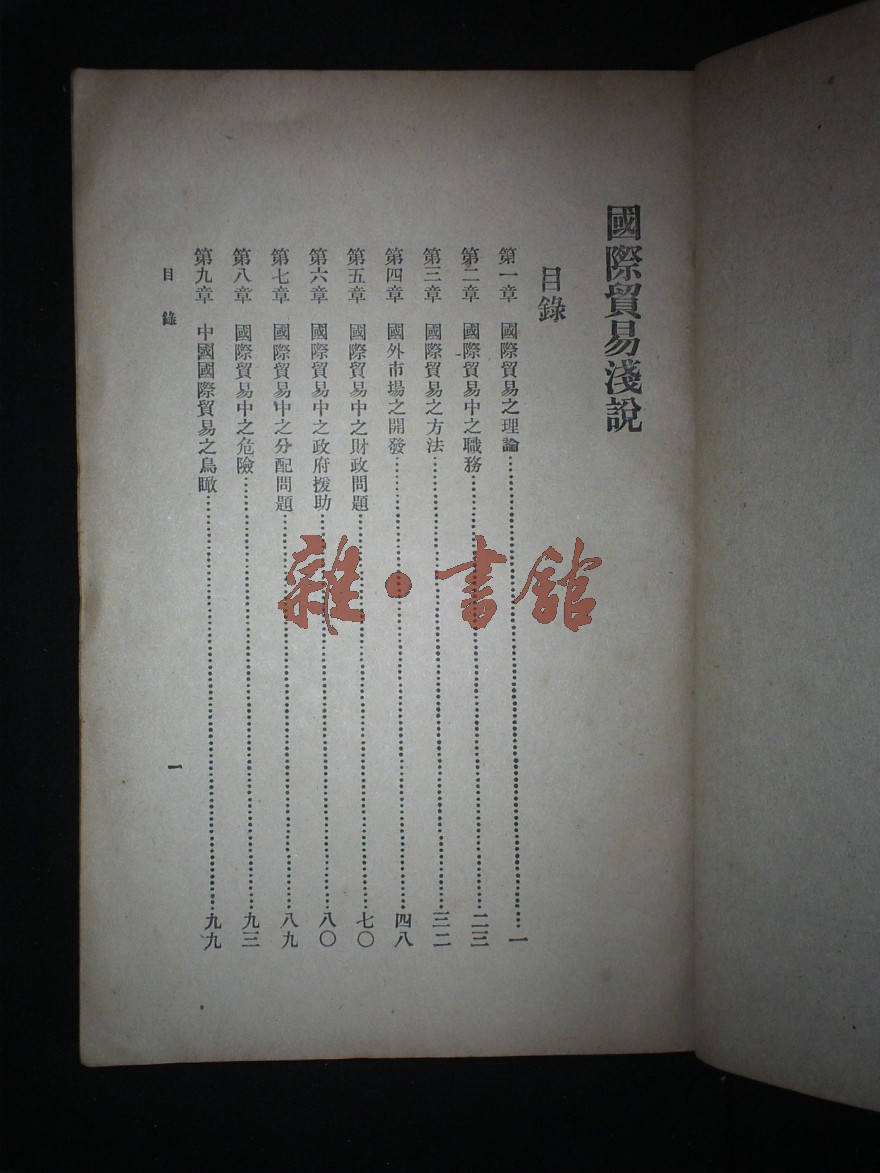 國際貿易淺說
目錄
第一章 國際貿易之理論……一
第二章 國際貿易中之職務……二三
第三章 國際貿易之方法……三二
第四章 國外市場之開發……四八
第五章 國際貿易中之財政問題……七〇
第六章 國際貿易中之政府援助……八〇
第七章 國際貿易中之分配問題……八九
第八章 國際貿易中之危險……九三
第九章 中國國際貿易之鳥瞰……九九
目錄 一
雜·書館